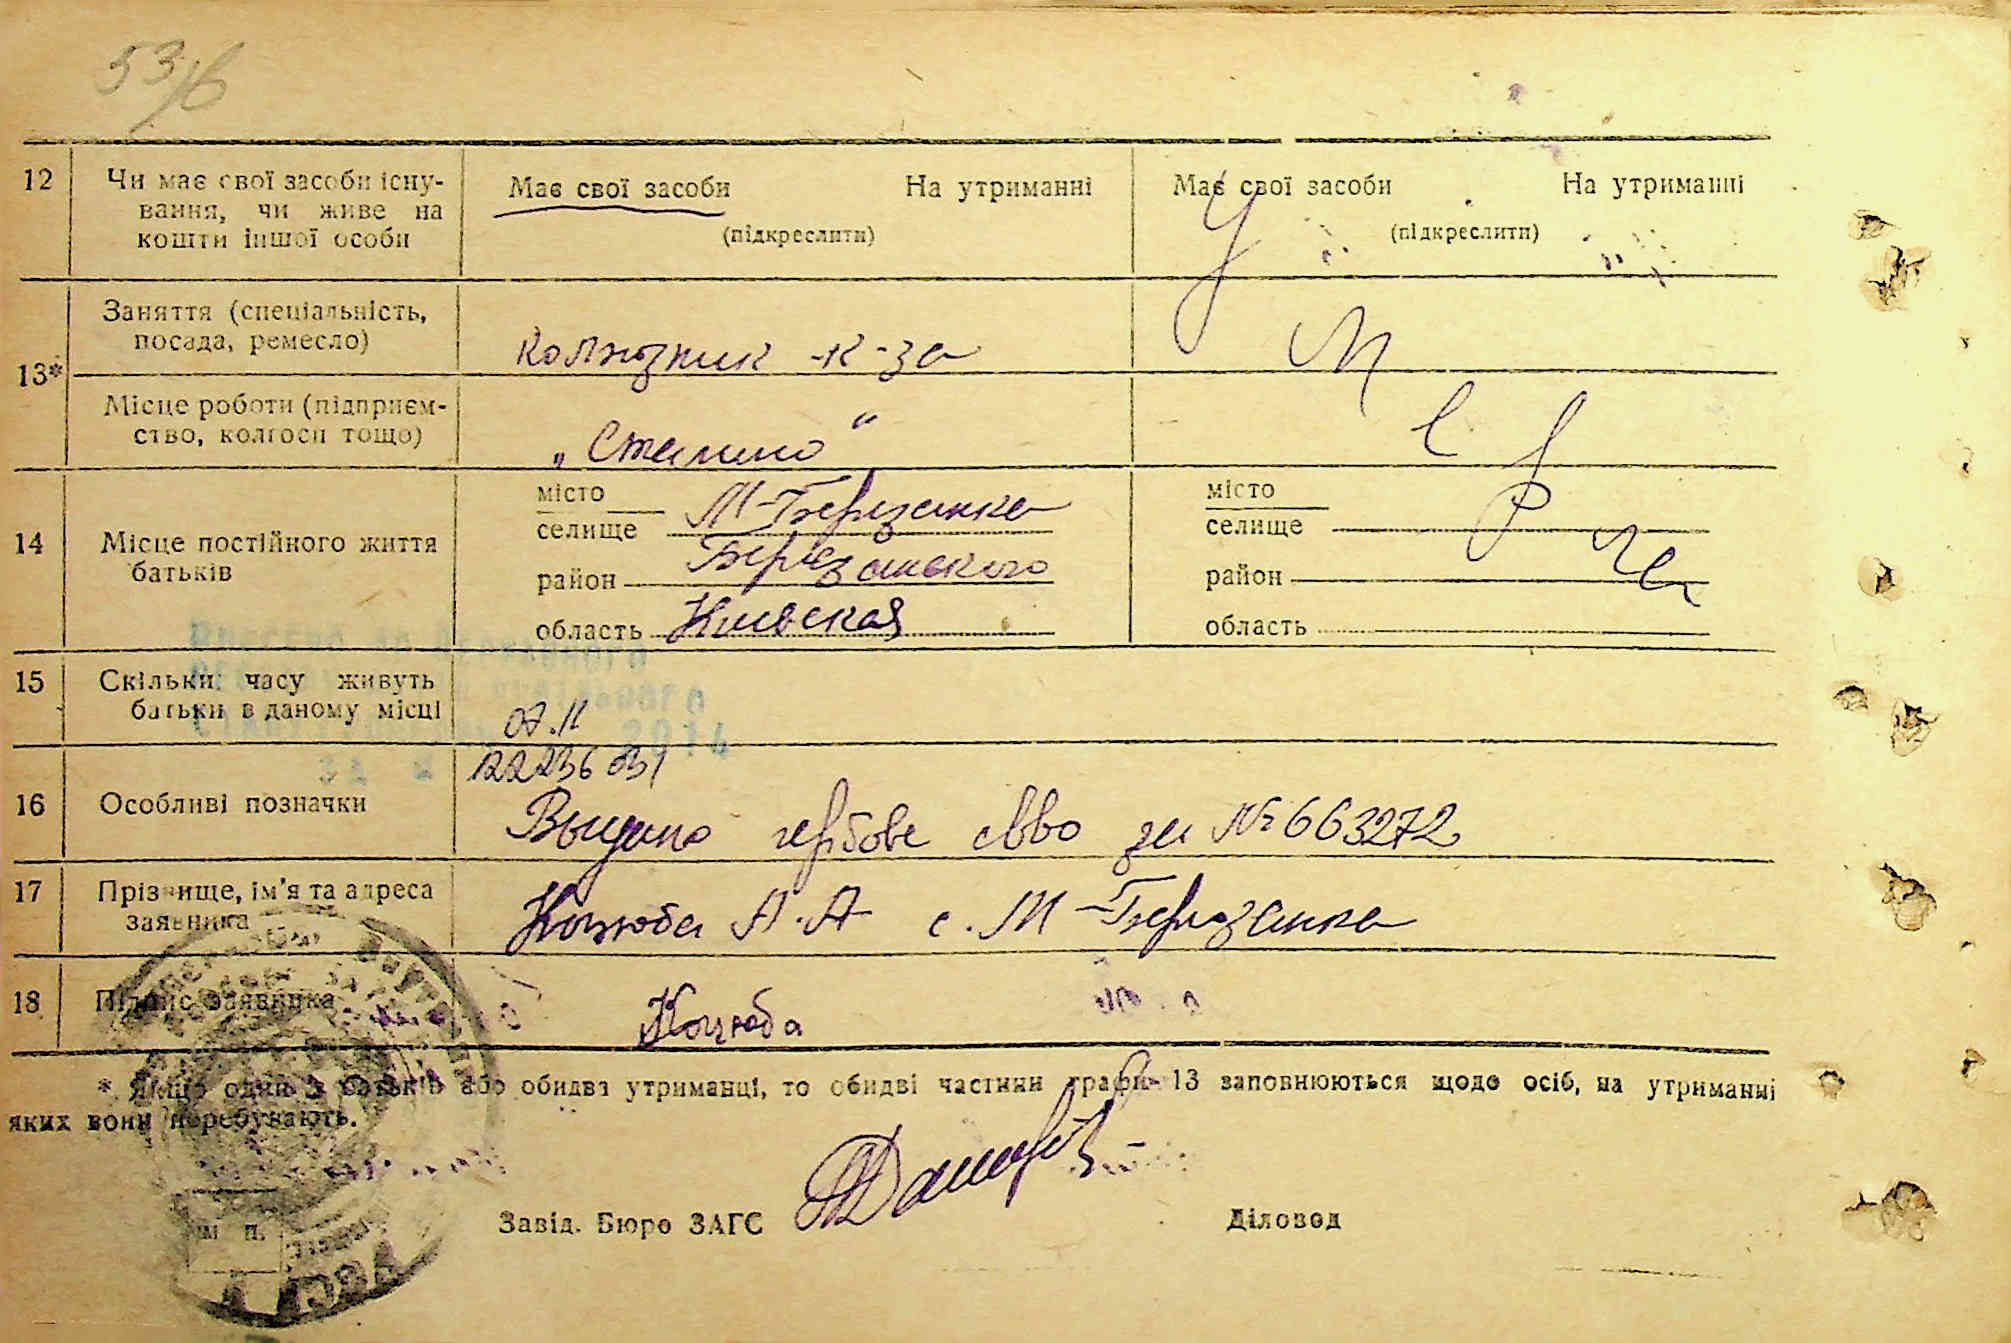 53/6
12 Чи має свої засоби існу- Має свої засоби На утриманні Має свої засоби На утриманні
вання, чи живе на
кошти іншої особи (підкреслити) (підкреслити)
Заняття (спеціальність,
посада, ремесло) колхозник к-за У м е р л а
13*
Місце роботи (підприєм-
ство, колгосп тощо) „Сталино“
14 Місце постійного життя батьків
місто
селище М-Березанка
район Березанского
область Киевская
місто
селище
район
область
15 Скільки часу живуть
батьки в даному місці 07.11
2223631
Внесено до Державного
2014
16 Особливі позначки Выдано гербове св-во за № 663272
17 Прізвище, ім'я та адреса
заявника Коцюба А.А с. М-Березанка
18 Підпис заявника Коцюба
* Якщо один з батьків або обидва утриманці, то обидві частини графи 13 заповнюються щодо осіб, на утриманні
яких вони перебувають.
м. п. Завід. Бюро ЗАГС Діловод